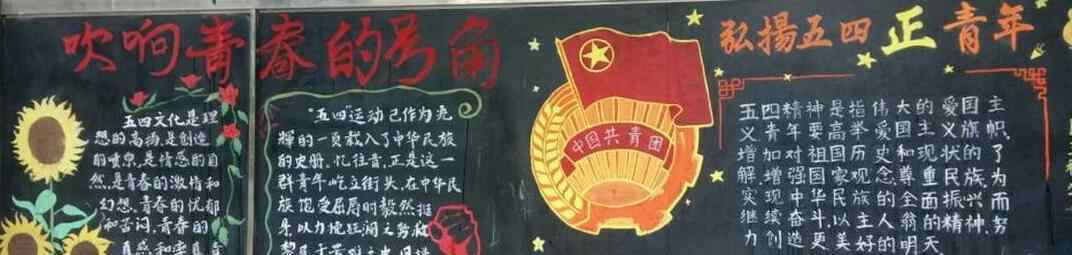 吹响青春的号角
五四文化是理
想的高扬,是创造
的喷泉,是情感的自
然,是青春的激情和
幻想,青春的忧郁
和苦闷,青春的
真感和率真
"五四"运动已作为光
辉的一页载入了中华民族
的史册。忆往昔,正是这一
群青年屹立街头,在中华民
族饱受屈辱时毅然挺
身,以力挽狂澜之势救
黎民于苦难之中
中国共青团
弘揚五四正青年
五四精神是指伟大的爱国主
义青年要高举爱国主义旗帜,
增加对祖国历史和现状的了
解,增强国家观念,尊重民族,为
实现中华民族的全面振兴而
继续奋斗,以主人翁的精神,努
力创造更美好的明天